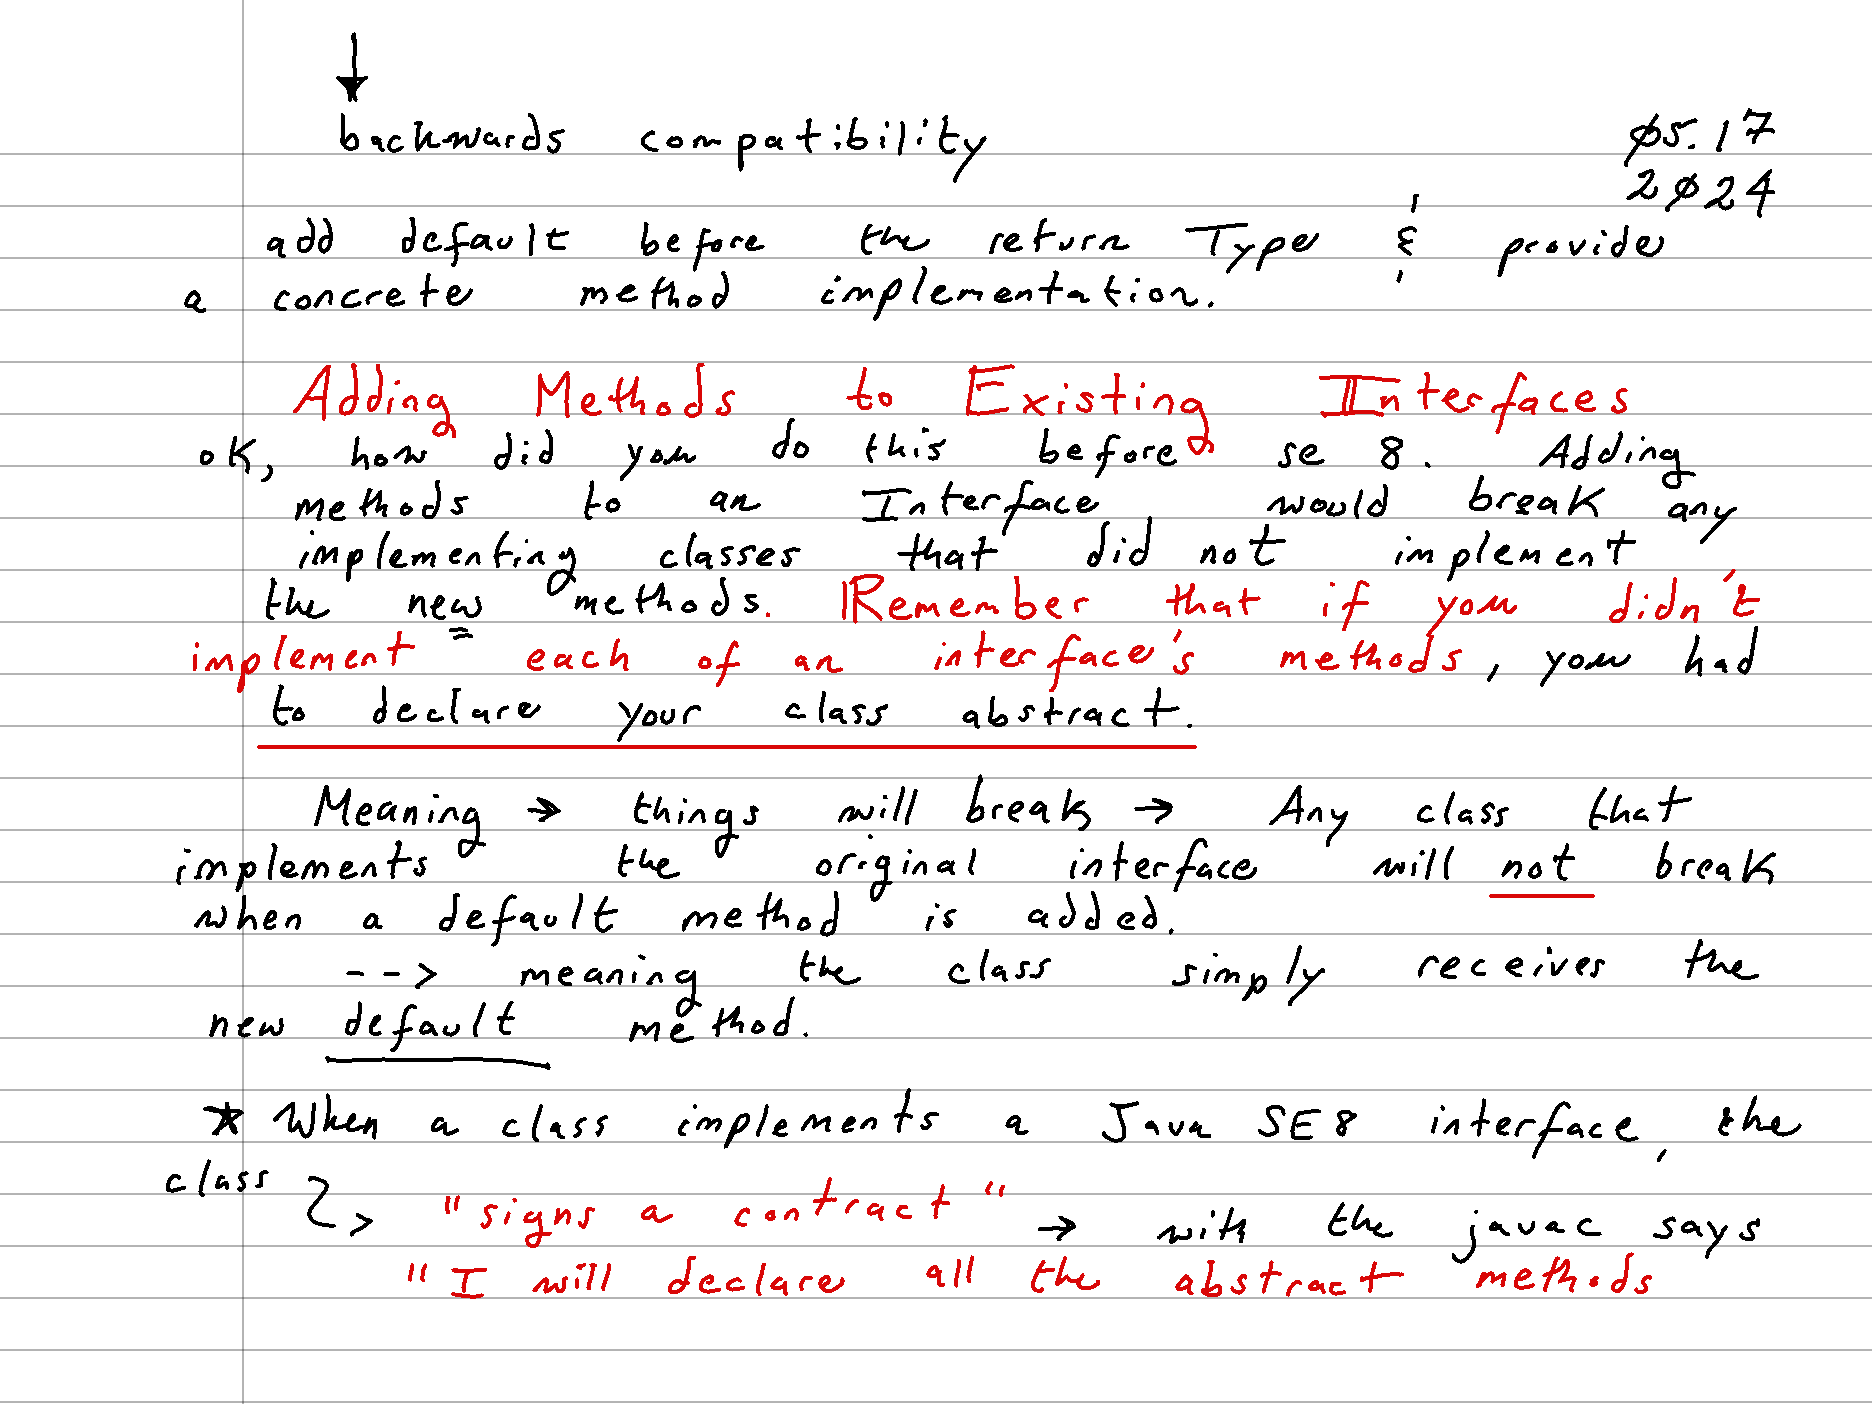 ↓
backwards compatibility
05.17
2024
add default before the return Type & provide
a concrete method implementation.
Adding Methods to Existing Interfaces
ok, how did you do this before se 8. Adding
methods to an Interface would break any
implementing classes that did not implement
the new methods. Remember that if you didn't
implement each of an interface's methods, you had
to declare your class abstract.
Meaning → things will break → Any class that
implements the original interface will not break
when a default method is added.
--> meaning the class simply receives the
new default method.
* When a class implements a Java SE8 interface, the
class
"signs a contract" → with the javac says
"I will declare all the abstract methods